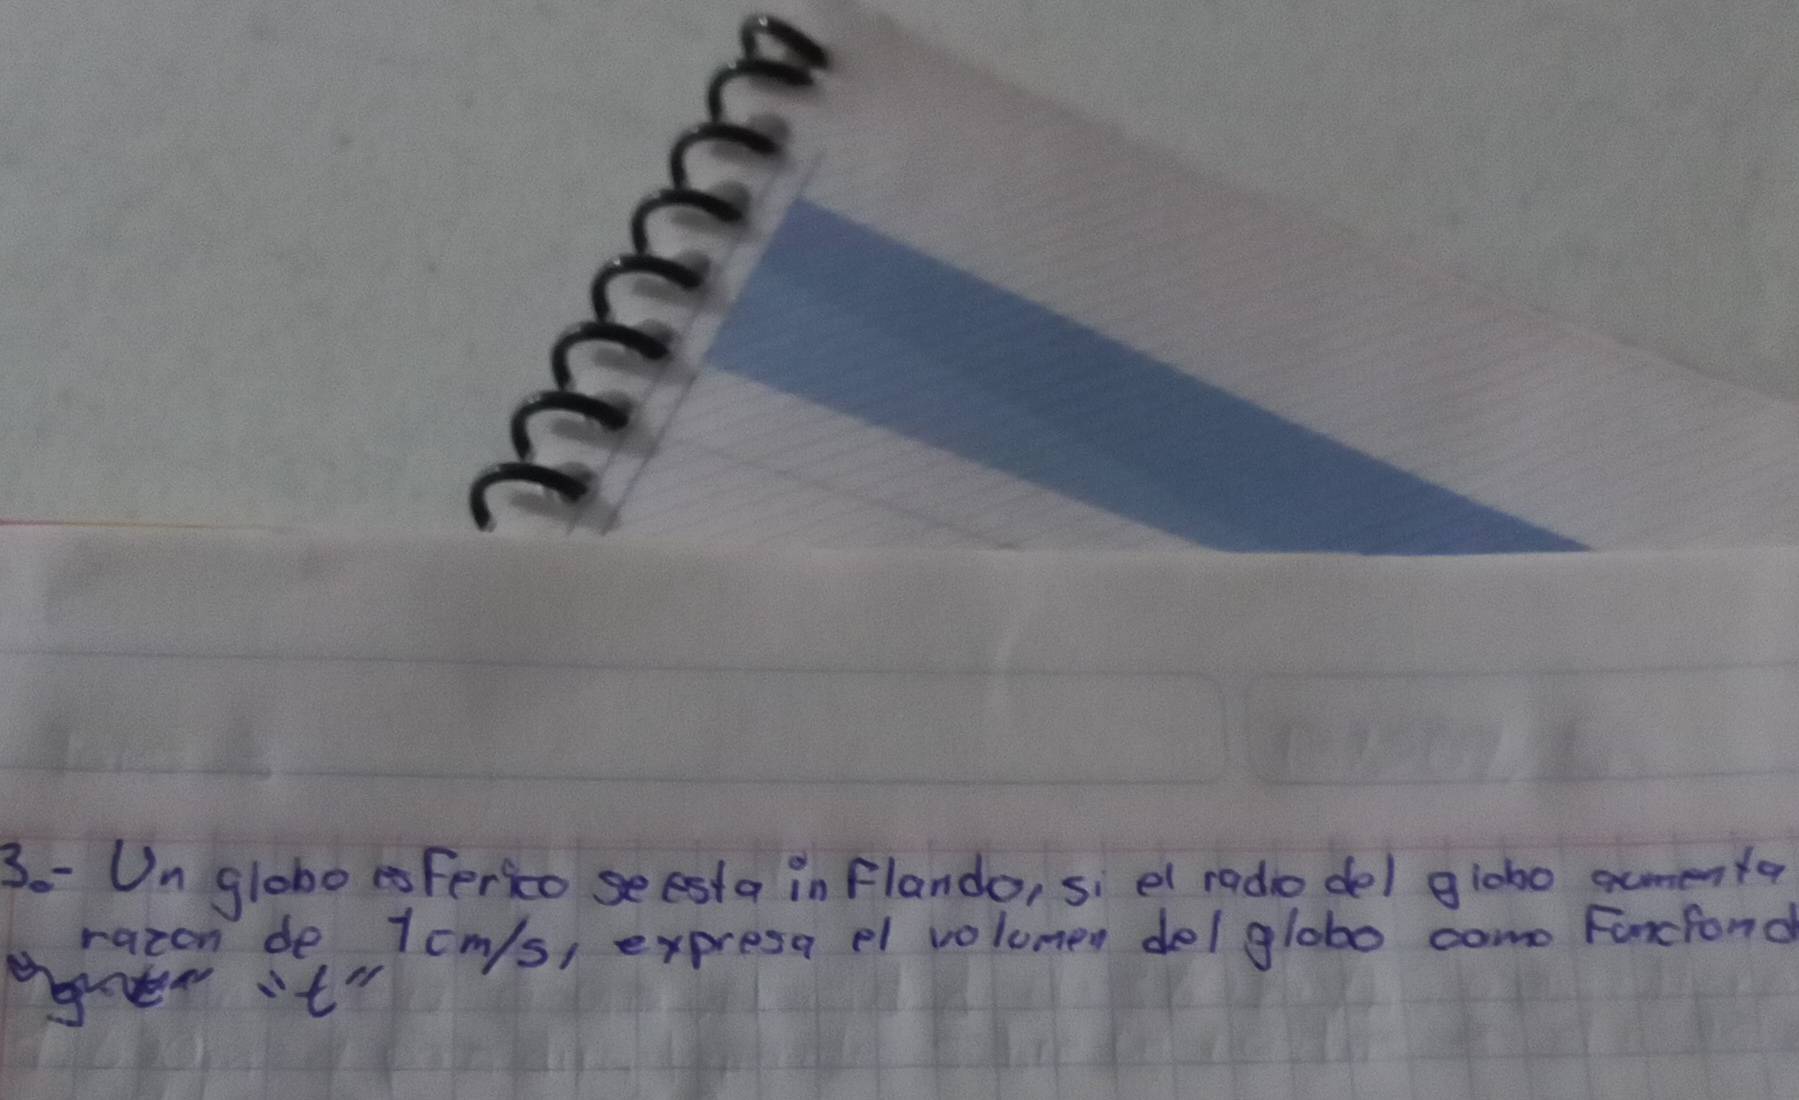 3.- Un globo esferico se esta inflando, si el radio del globo aumenta
razon de 1cm/s, expresa el volumen del globo como Funcion d
"t"